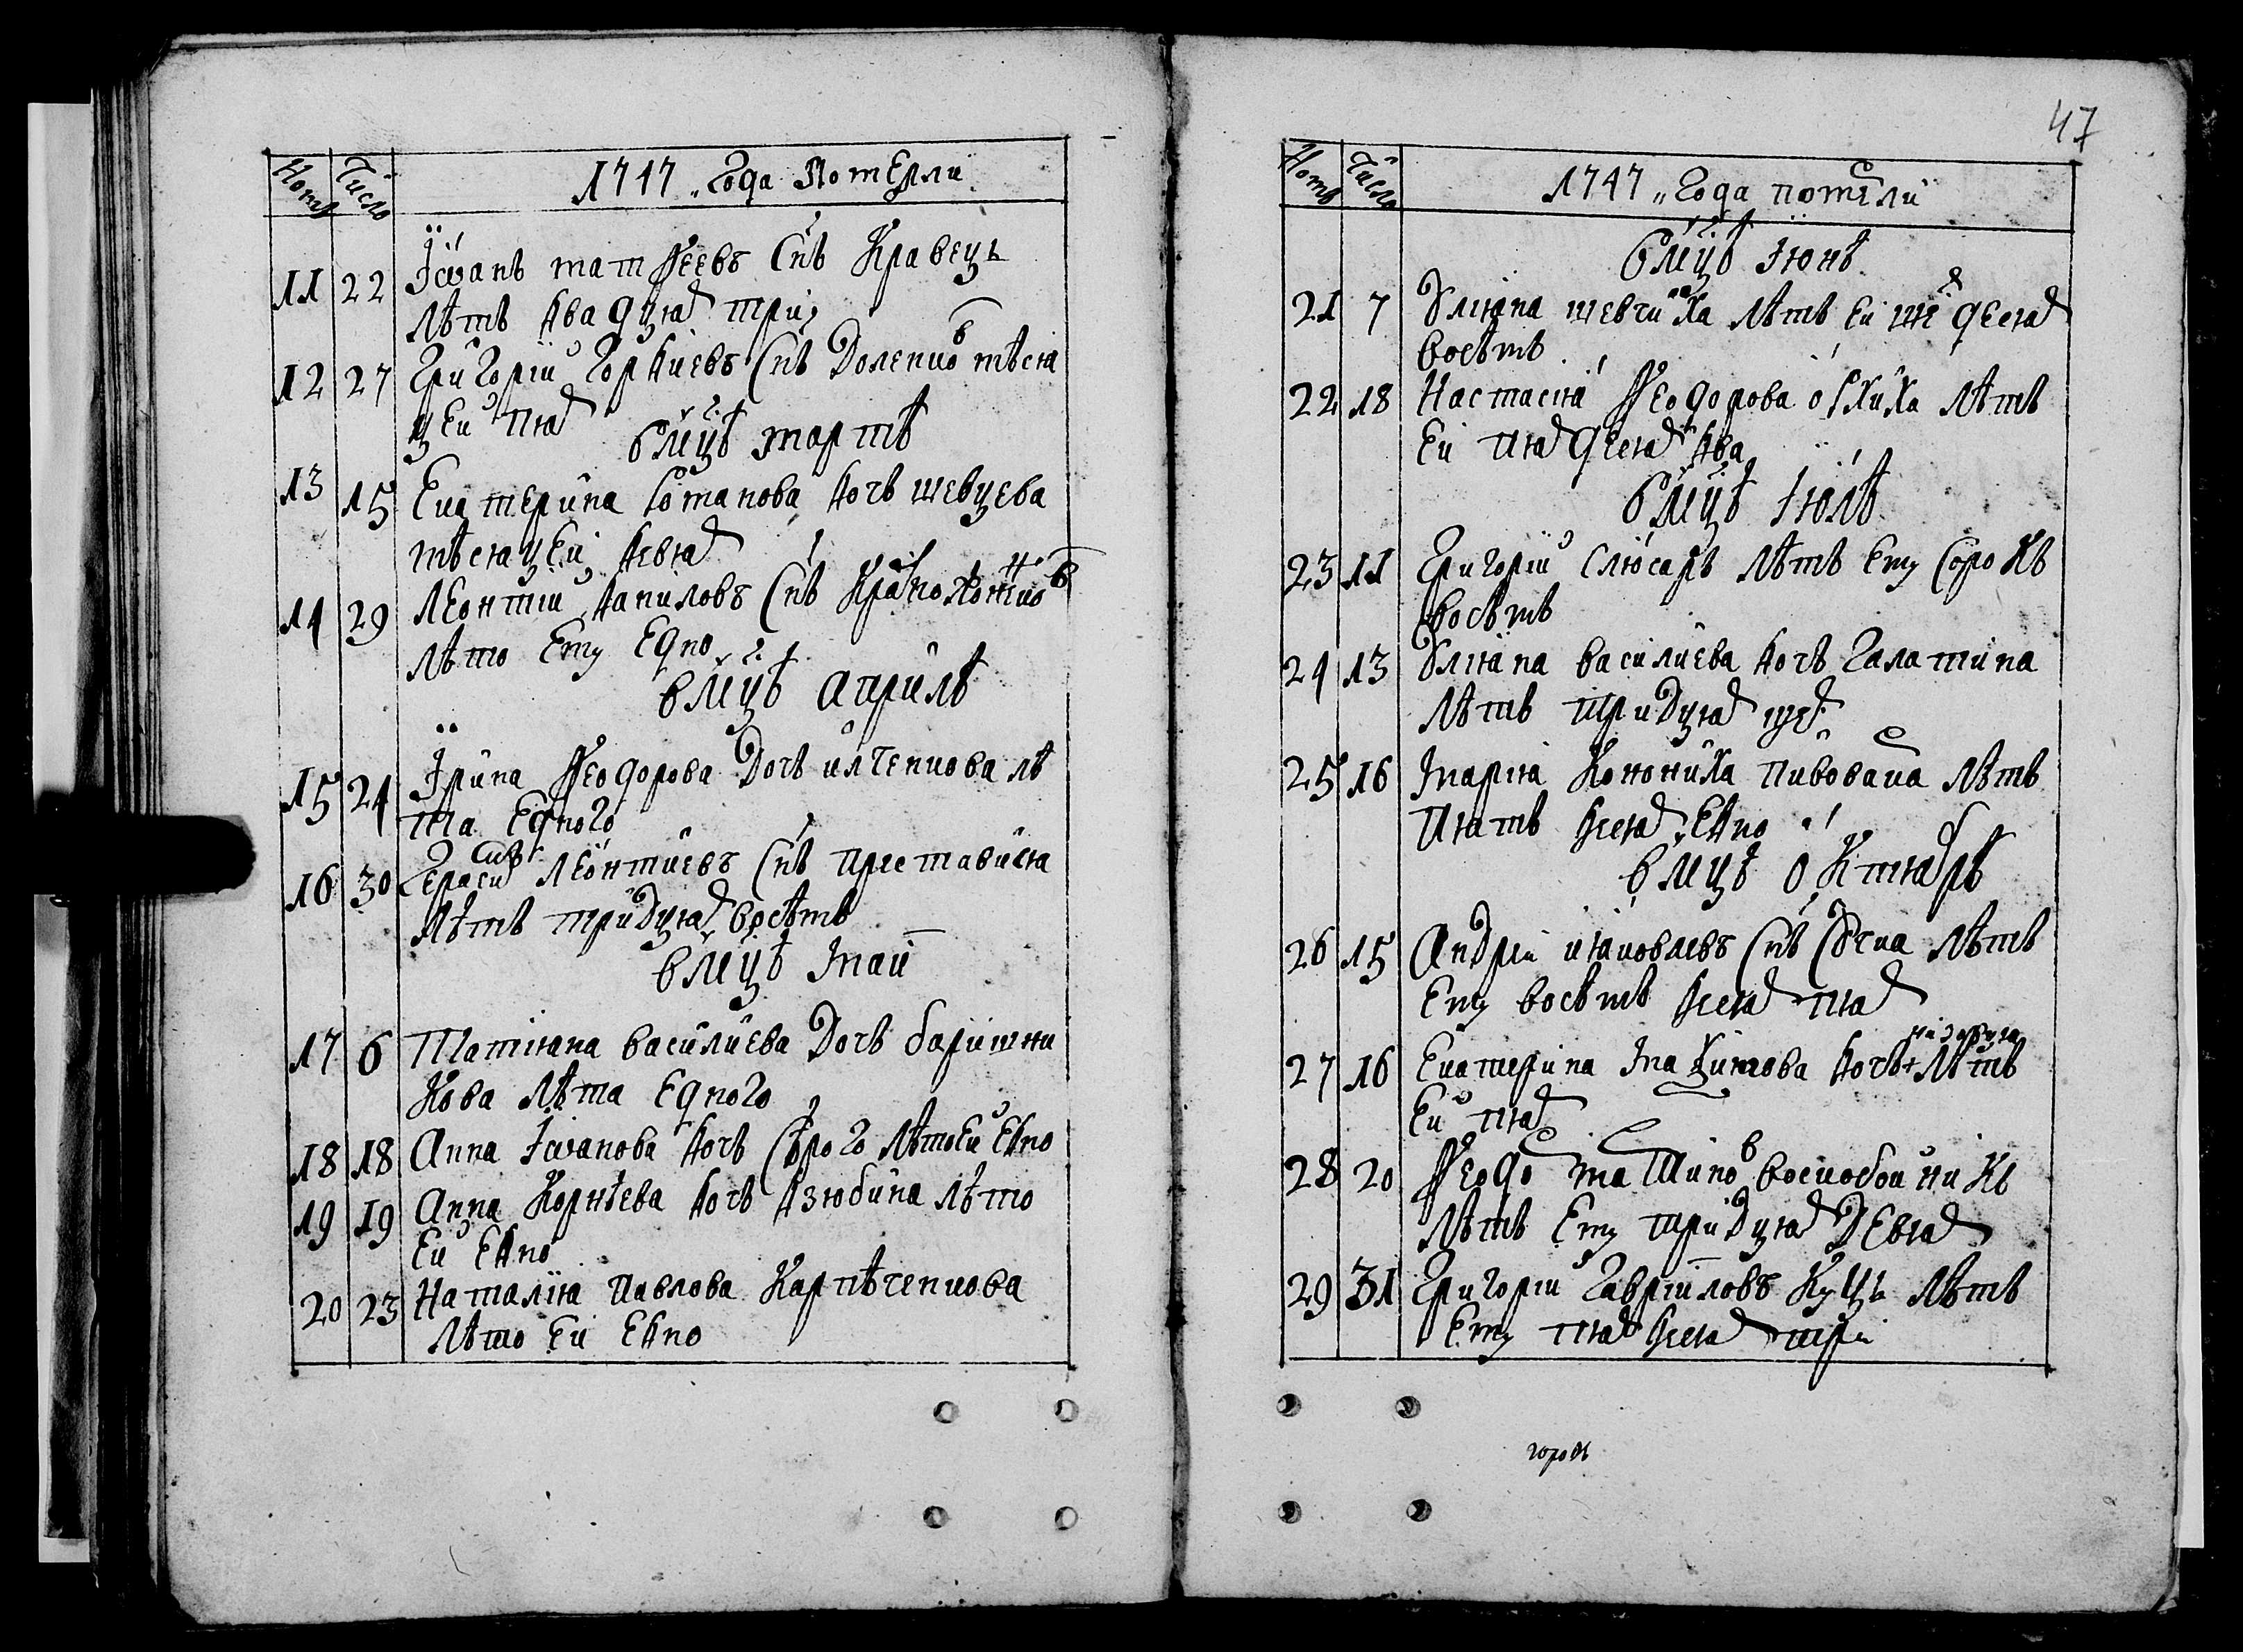 Номъ Число 1747 „ Года Померли
11 22 Іѡанъ Матѳеевъ Снъ Кравецъ
Лѣтъ двадцят три
12 27 Григорій Гордиевъ Снъ Доленков мѣся
цей пят
в мцѣ Мартѣ
13 15 Екатерина Романова дочъ шевцева
мѣсяцей девят
14 29 Леонтій Даниловъ Снъ
Лѣто Ему Едно
в мцѣ Априлѣ
15 24 Ірина Ѳеодорова Дочъ илченкова лѣ
та Едного
16 30 Герасим Леонтиевъ Снъ преставися
Лѣтъ тридцят восѣмъ
в мцѣ Маи
17 6 Татіяна василиева Дочъ баришни
кова Лѣта Едного
18 18 Анна Іѡанова дочъ Сѣрого Лѣто Ей Едно
19 19 Анна Корнѣева дочъ дзюбина Лѣто
Ей Едно
20 23 Наталия Павлова Карпѣченкова
Лѣто Ей Едно
47
Номъ Число 1747 „ Года померли
в мцѣ Іюнѣ
21 7 Улияна шевчиха Лѣтъ Ей шездесят
восѣмъ
22 18 Настасия Ѳеодорова Лѣтъ
Ей пятдесят два
в мцѣ Іюлѣ
23 11 Григорій Слюсаръ Лѣтъ Ему Сорокъ
восѣмъ
24 13 Улияна василиева дочъ Галатина
Лѣтъ тридцят шест
25 16 Мария Конониха Лѣтъ
Пятъ десят Едно
в мцѣ Октябрѣ
26 15 Андрій яковлевъ Снъ Лѣтъ
Ему восѣмъ десят пят
27 16 Екатерина Маѯимова дочъ + Лѣтъ
Ей пят
28 20 Ѳеодор воскобойникъ
Лѣтъ Ему тридцят Девят
29 31 Григорій Гавриловъ Куцъ Лѣтъ
Ему пят десят три